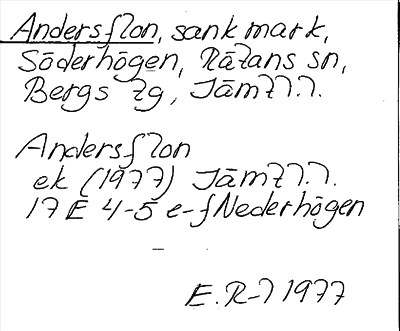 Andersflon, sank mark,
Söderhögen, Rätans sn,
Bergs tg, Jämtl.l.
Andersflon
ek (1977) Jämtl.l.
17 E 4-5 e-f Nederhögen
E. R-l 1977